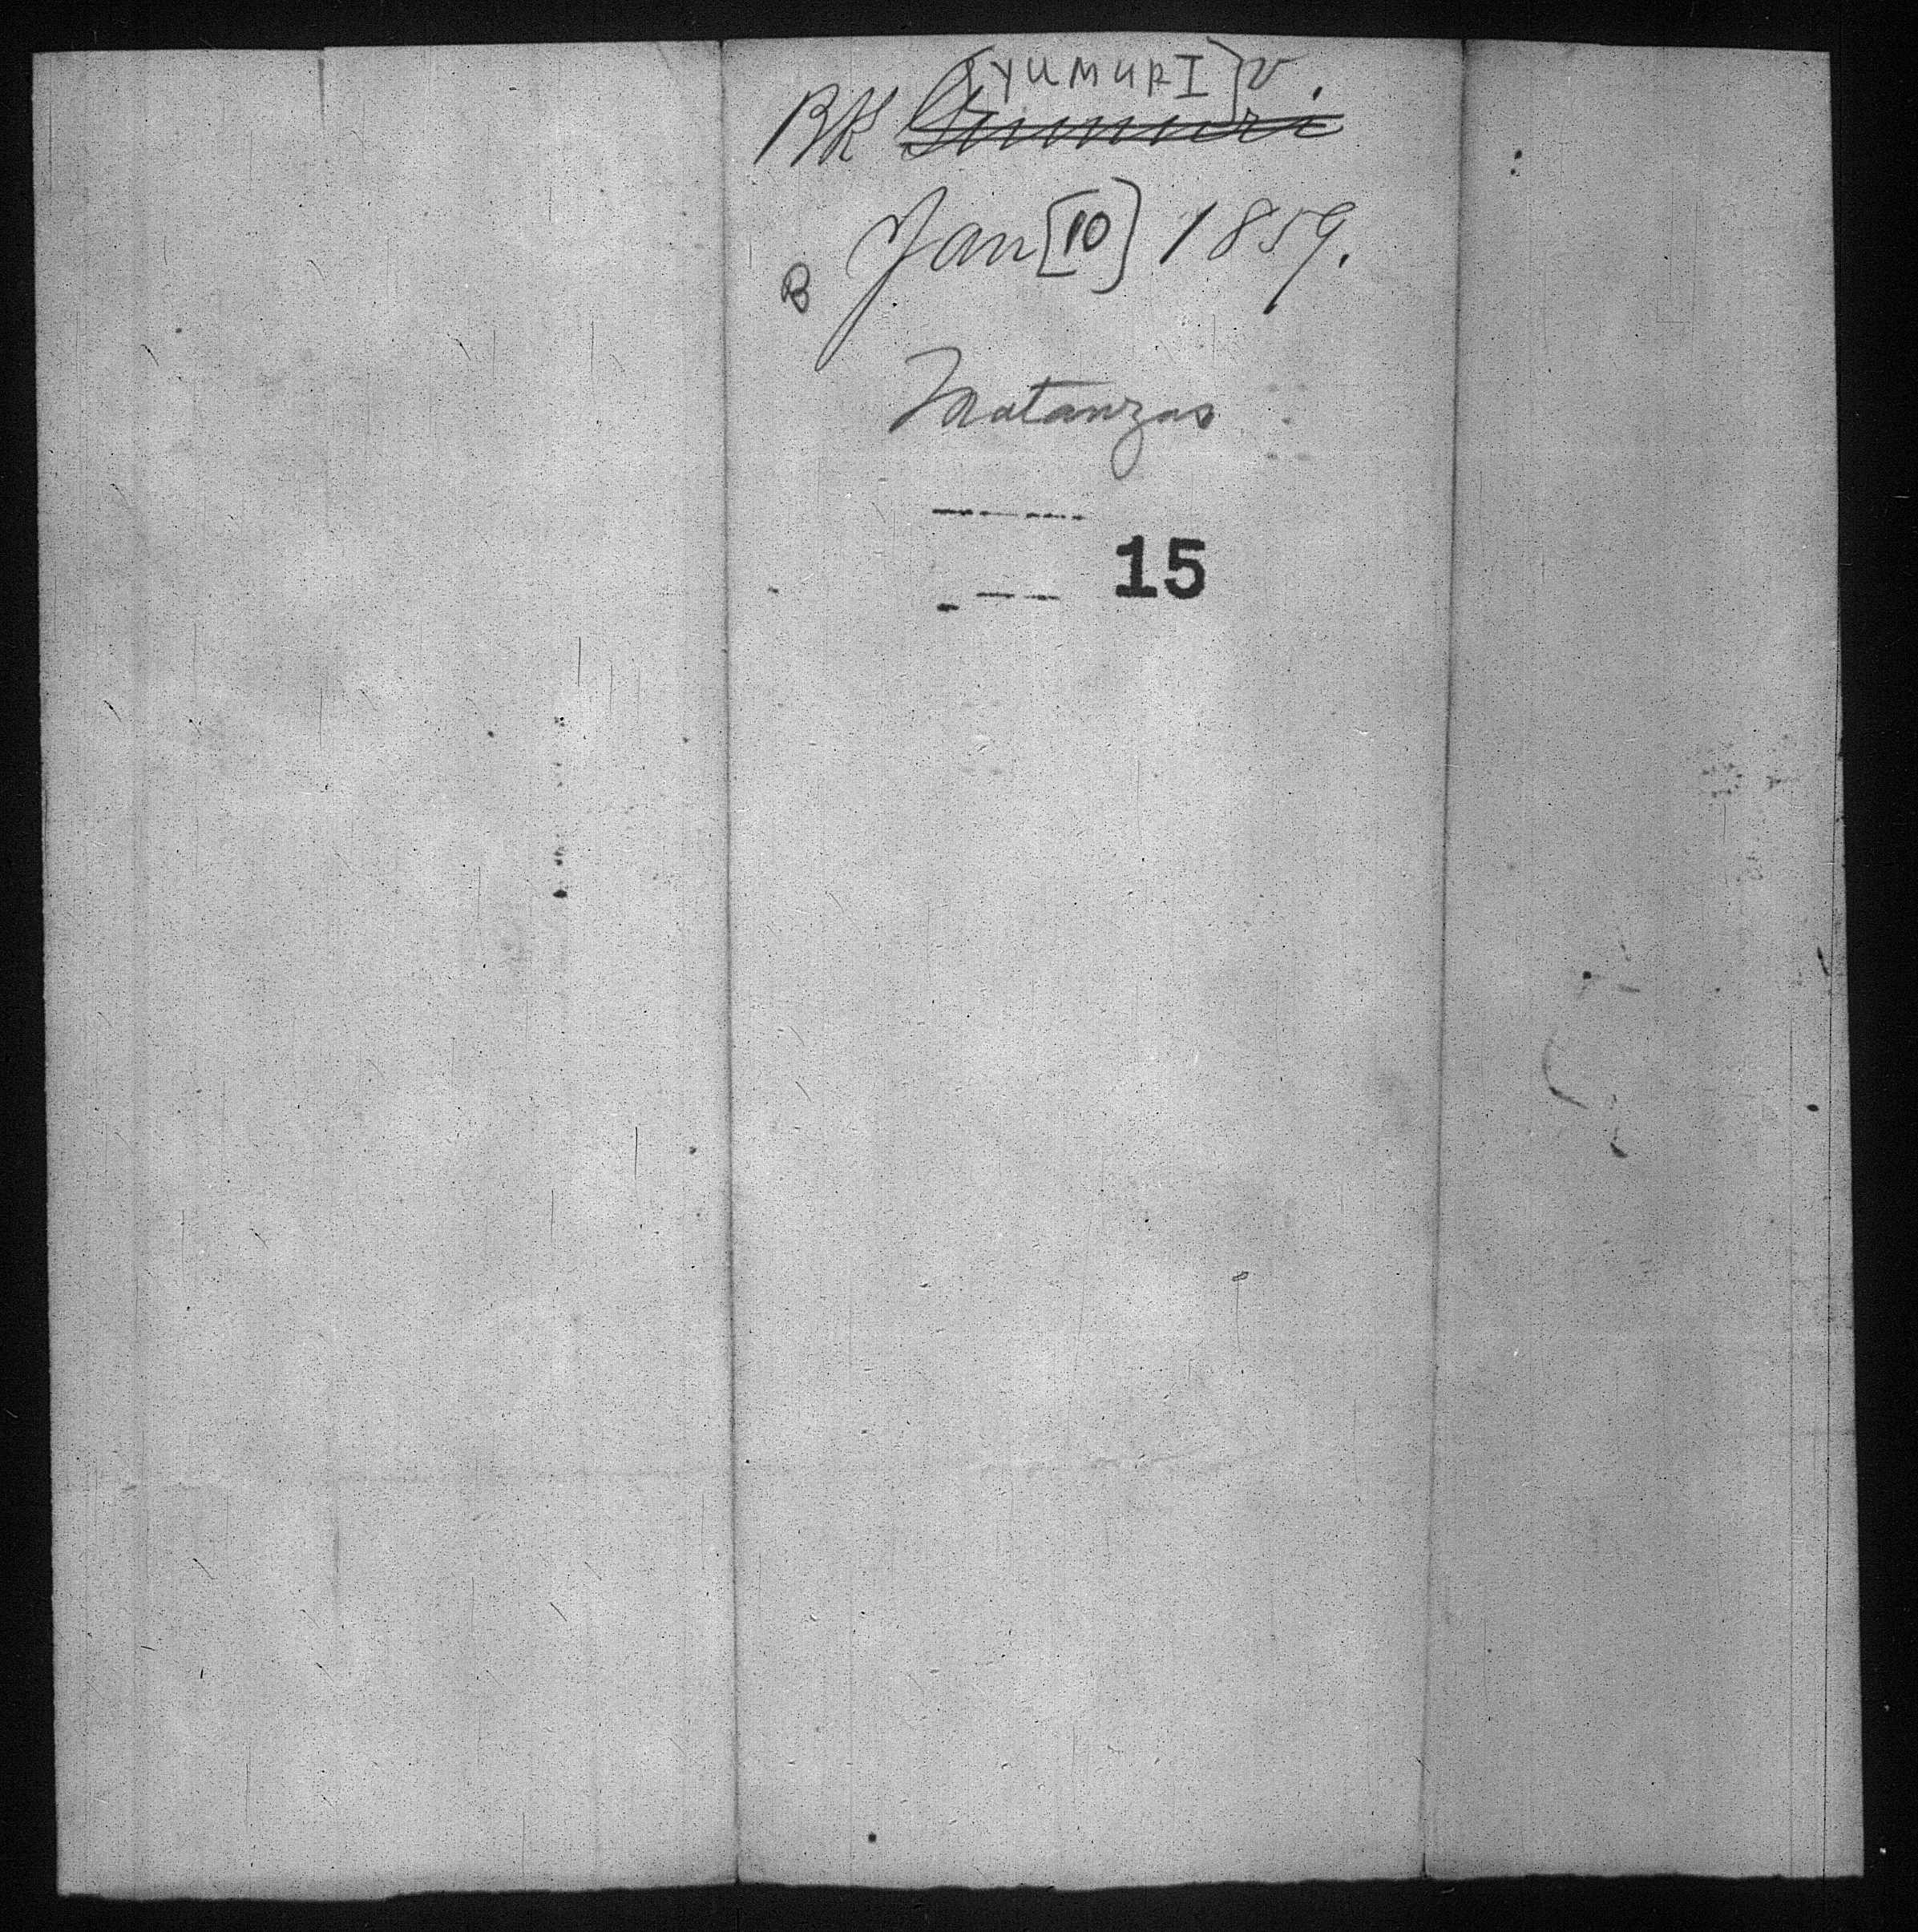 [YUMURI] v.
BK
Jan [10] 1859.
B
Matanzas
15